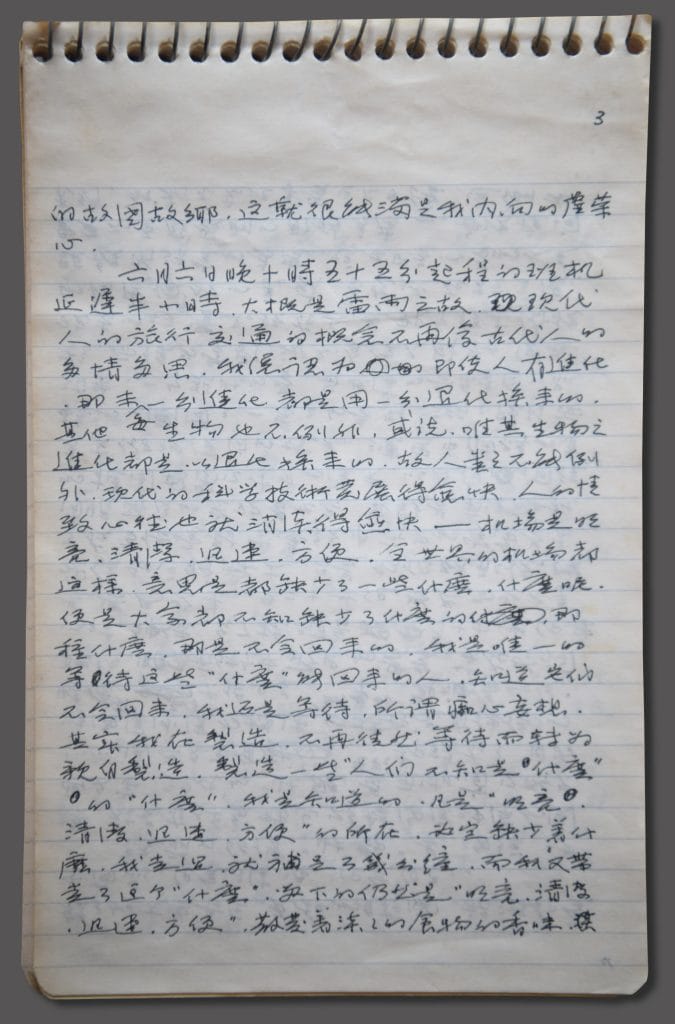 3
的故国故鄉．这就很能满足我内向的虚荣
心．
六月六日晚十時五十五分起程的班机
延遲半小時．大概是雷雨之故．現代
人的旅行交通的概念不再像古代人的
多情多思．我倒認为即使人有進化
．那末一分進化都是用一分退化换来的．
其他每生物也不例外，或说．唯其生物之
進化都是以退化换来的．故人類之不能例
外．现代的科学技術发展得愈快．人的情
致心性也就消失得愈快——机場是明
亮．清潔．迅速．方便．全世界的机場都
这樣．意思是都缺少了一些什麼．什麼呢．
便是大家都不知缺少了什麼的什麼．那
種什麼．那是不会回来的．我是唯一的
等待这些“什麼”能回来的人．知道它们
不会回来．我还是等待．所谓痴心妄想．
其实我在製造．不再徒然等待而转为
親自製造．製造一些“人们不知是‘什麼’
’的“什麼”．我是知道的．凡是“明亮．
清潔．迅速．方便”的所在．必定缺少着什
麼．我走过．就補足了或出缝．而我又带
走了这个“什麼”．留下的仍然是“明亮．清潔
．迅速．方便”．散发着淡淡的食物的香味．